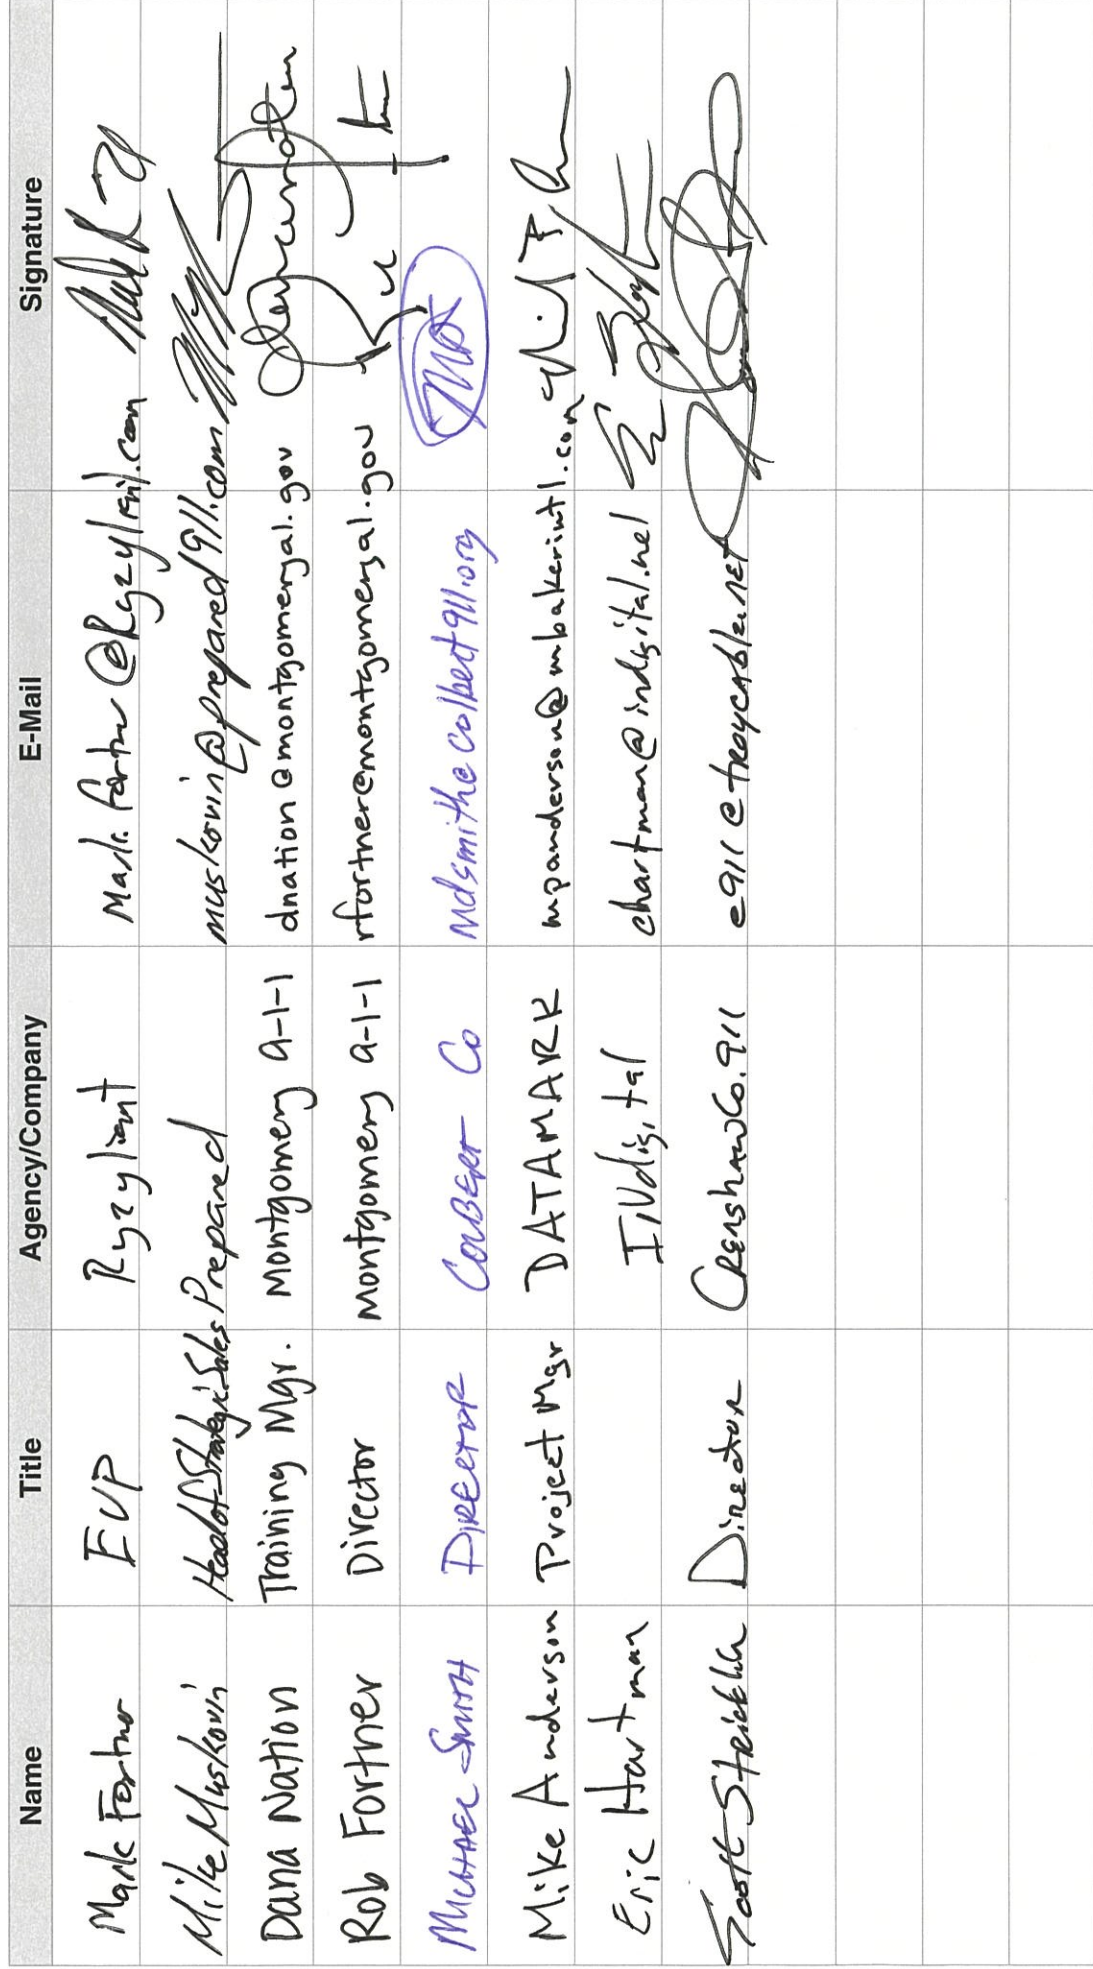 Name Title Agency/Company E-Mail Signature
Mark Fortner EVP Ryzyliant Mark.Fortner@Ryzyliant.com
Mike Muskovin Head of Strategic Sales Prepared muskovin@prepared911.com
Dana Nation Training Mgr. Montgomery 9-1-1 dnation@montgomeryal.gov
Rob Fortner Director Montgomery 9-1-1 rfortner@montgomeryal.gov
MICHAEL SMITH DIRECTOR COLBERT Co mdsmith@colbert911.org
Mike Anderson Project Mgr DATAMARK mpanderson@mbakerintl.com
Eric Hartman INdigital chartman@indigital.net
Scott Director CRENSHAW Co. 911 e911@troycable.net